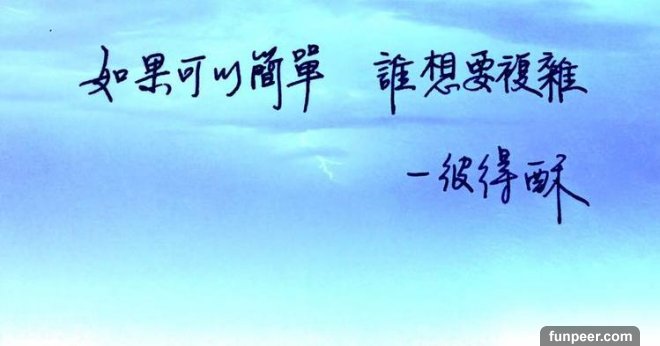 如果可以簡單 誰想要複雜
－彼得酥
funpeer.com